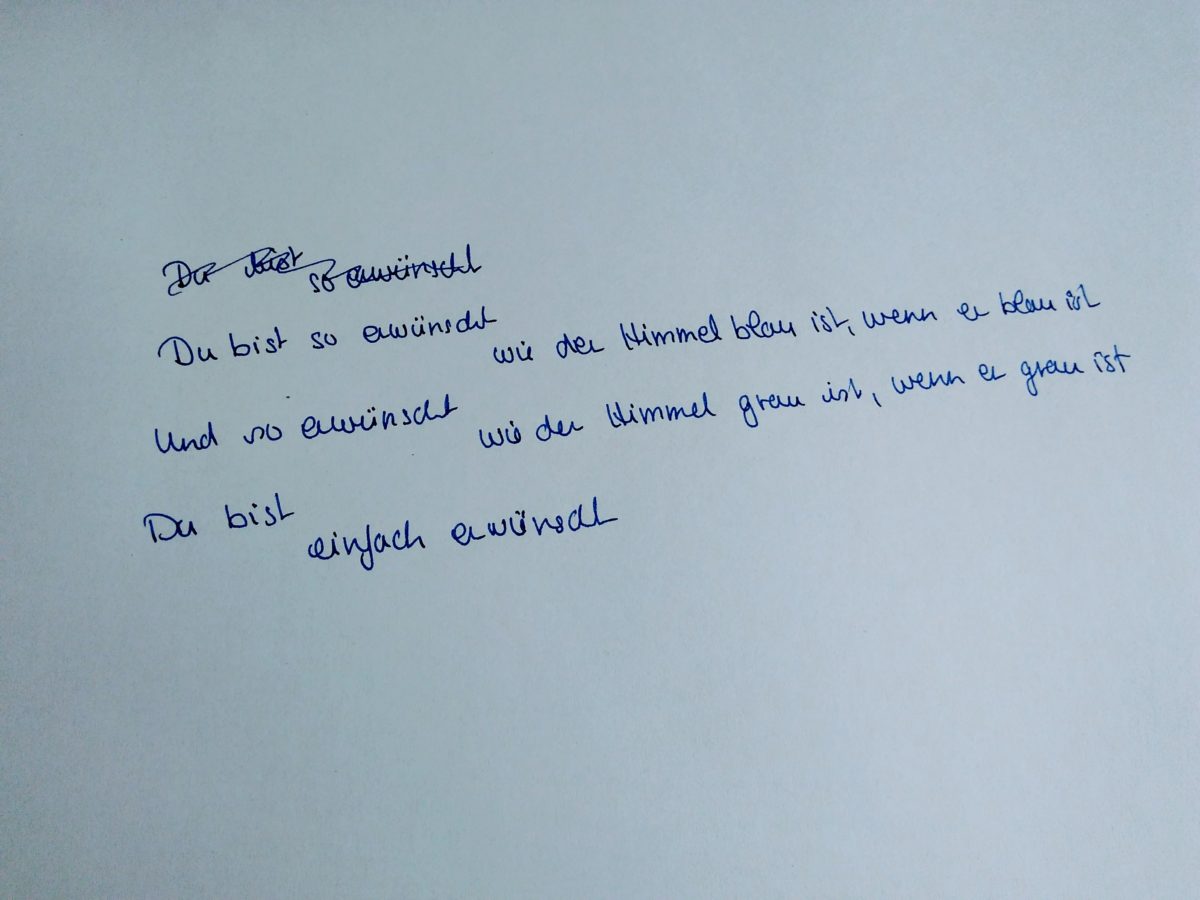 Du bist so erwünscht
Du bist so erwünscht
wie der Himmel blau ist, wenn er blau ist
Und so erwünscht
wie der Himmel grau ist, wenn er grau ist
Du bist
einfach erwünscht